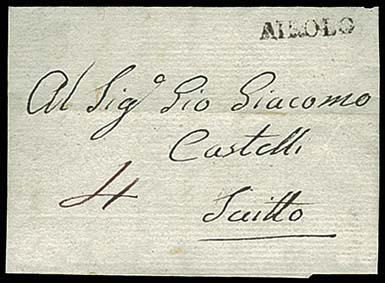 AIROLO
Al Sig.º Gio Giacomo
Castelli
4